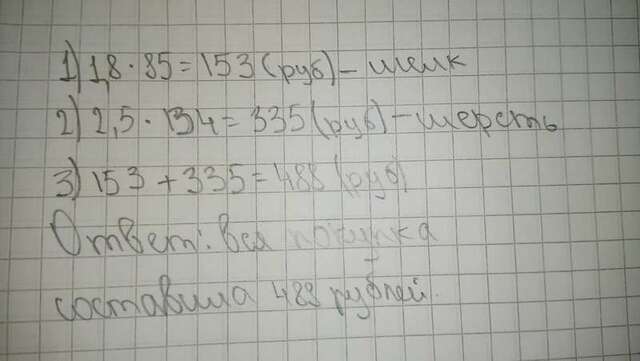 1) 1,8 · 85 = 153 (руб) – шелк
2) 2,5 · 134 = 335 (руб) – шерсть
3) 153 + 335 = 488 (руб)
Ответ: вся покупка
составила 488 рублей.